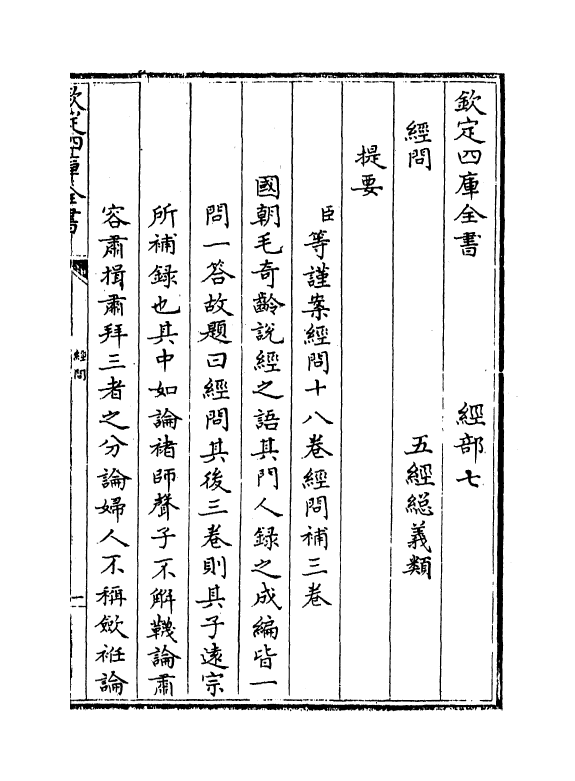 欽定四庫全書　　　　經部七
經問　　　　五經總義類
提要
臣等謹案經問十八卷經問補三卷
國朝毛奇齡說經之語其門人録之成編皆一
問一答故題曰經問其後三卷則其子遠宗
所補録也其中如論褚師聲子不解韈論肅
容肅揖肅拜三者之分論婦人不稱歛袵論
欽定四庫全書
經問
一